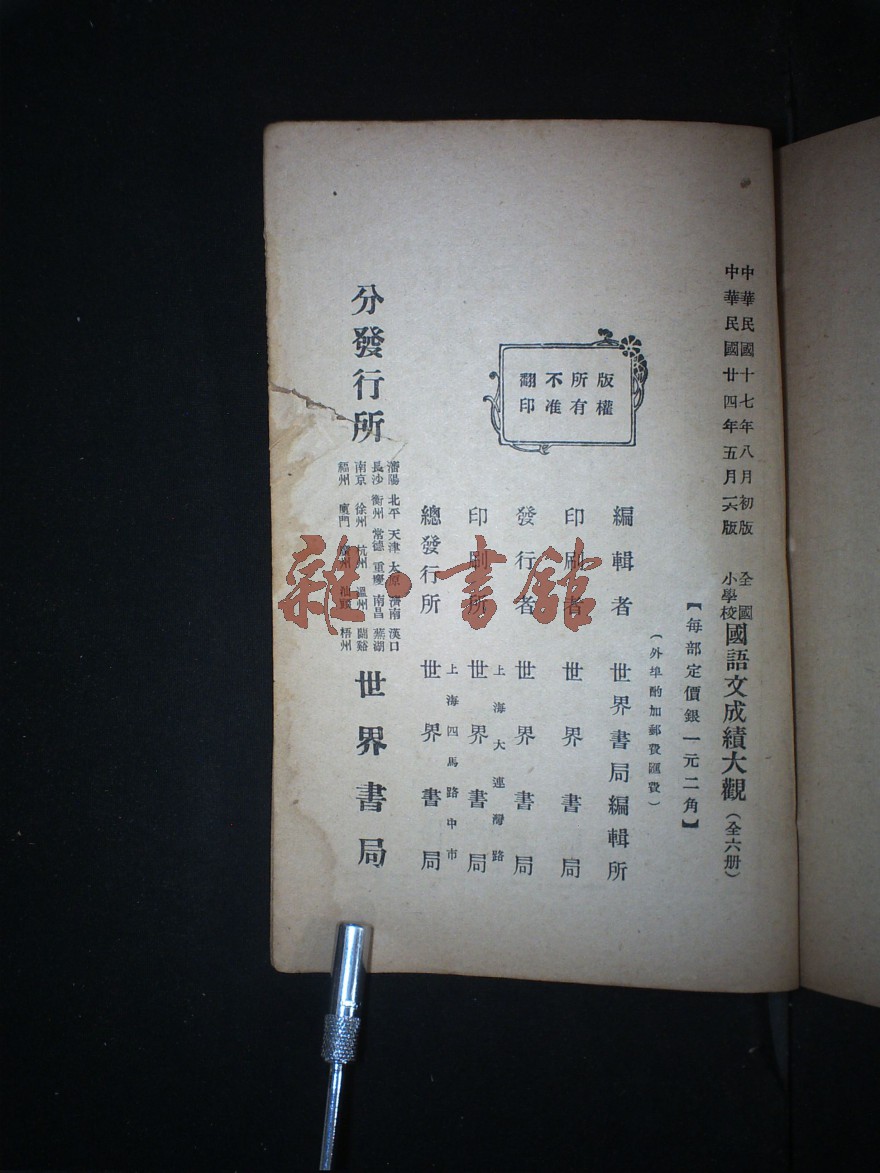 中華民國十七年八月初版
中華民國廿四年五月六版
全國小學校國語文成績大觀（全六册）
【每部定價銀一元二角】
（外埠酌加郵費匯費）
版權
所有
不准
翻印
編輯者 世界書局編輯所
印刷者 世界書局
發行者 世界書局
上海大連灣路
印刷所 世界書局
上海四馬路中市
總發行所 世界書局
分發行所
瀋陽 北平 天津 太原 濟南 漢口
長沙 衡州 常德 重慶 南昌 蕪湖
南京 徐州 杭州 溫州 蘭谿
福州 廈門 廣州 汕頭 梧州
世界書局
雜·書館